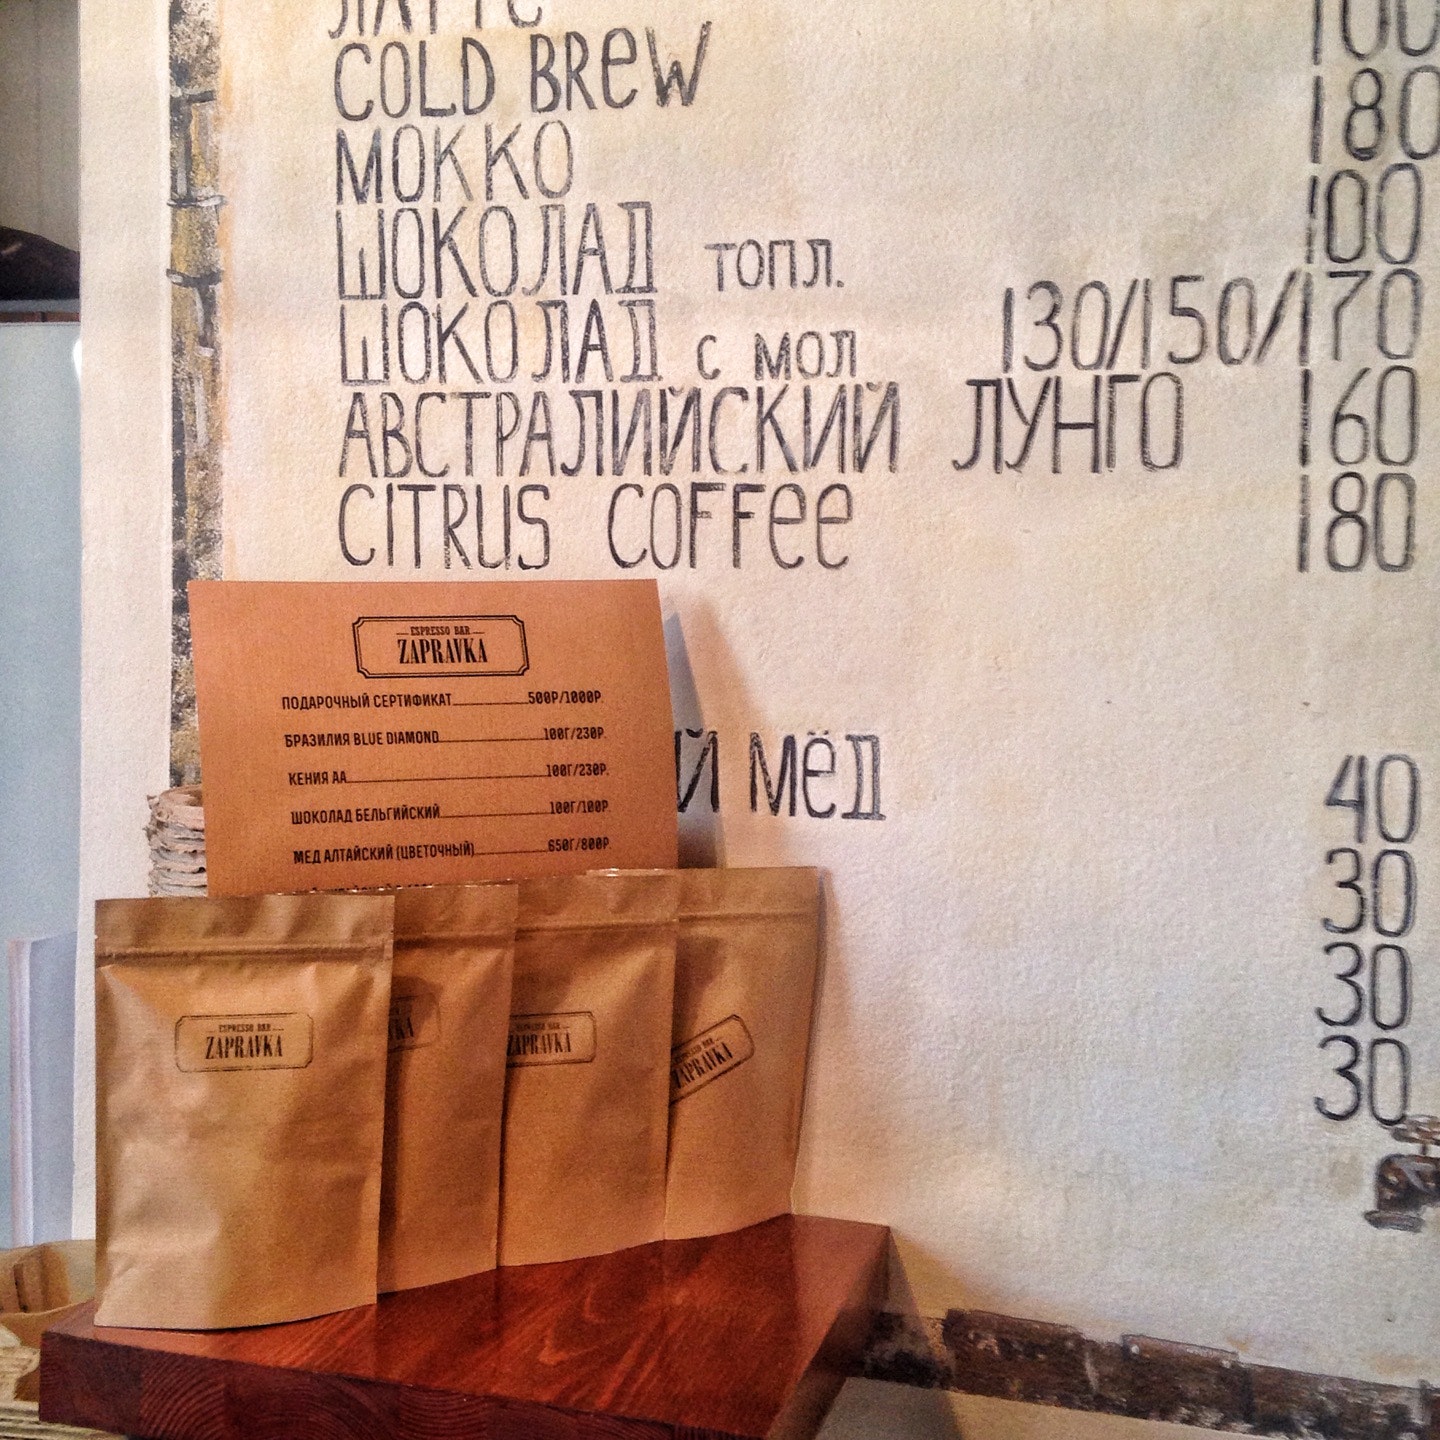 ЛАТТЕ
COLD BREW 100
МОККО 180
ШОКОЛАД топл. 100
ШОКОЛАД с мол 130/150/170
АВСТРАЛИЙСКИЙ ЛУНГО 160
CITRUS COFFEE 180
ESPRESSO BAR
ZAPRAVKA
ПОДАРОЧНЫЙ СЕРТИФИКАТ 500Р/1000Р.
БРАЗИЛИЯ BLUE DIAMOND 100Г/230Р.
КЕНИЯ АА 100Г/230Р.
ШОКОЛАД БЕЛЬГИЙСКИЙ 100Г/100Р.
МЕД АЛТАЙСКИЙ (ЦВЕТОЧНЫЙ) 650Г/800Р.
МЁД 40
30
30
30
ESPRESSO BAR
ZAPRAVKA
ESPRESSO BAR
ZAPRAVKA
ZAPRAVKA